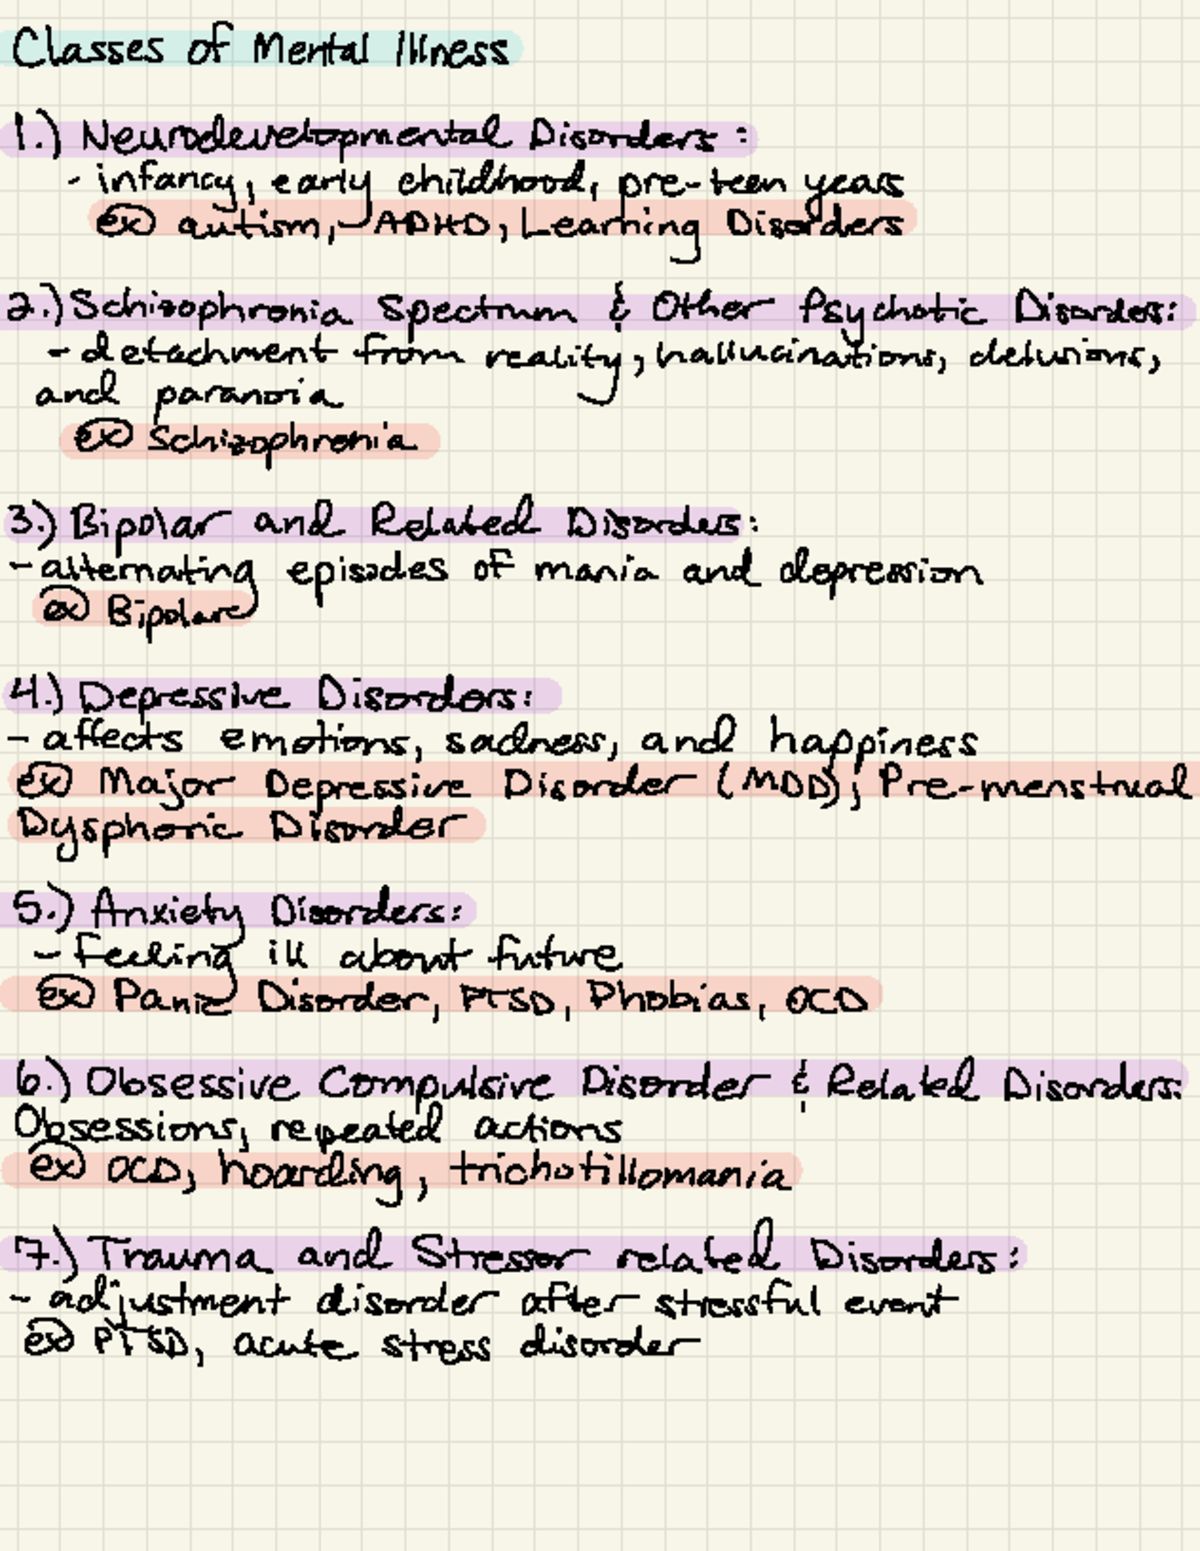 Classes of Mental Illness
1.) Neurodevelopmental Disorders :
- infancy, early childhood, pre-teen years
ex autism, ADHD, Learning Disorders
2.) Schizophronia Spectrum & Other Psychotic Disorders:
- detachment from reality, hallucinations, delusions,
and paranoia
ex Schizophrenia
3.) Bipolar and Related Disorders:
- alternating episodes of mania and depression
ex Bipolar
4.) Depressive Disorders:
- affects emotions, sadness, and happiness
ex Major Depressive Disorder (MDD), Pre-menstrual
Dysphoric Disorder
5.) Anxiety Disorders:
- feeling ill about future
ex Panic Disorder, PTSD, Phobias, OCD
6.) Obsessive Compulsive Disorder & Related Disorders:
Obsessions, repeated actions
ex OCD, hoarding, trichotillomania
7.) Trauma and Stressor related Disorders:
- adjustment disorder after stressful event
ex PTSD, acute stress disorder